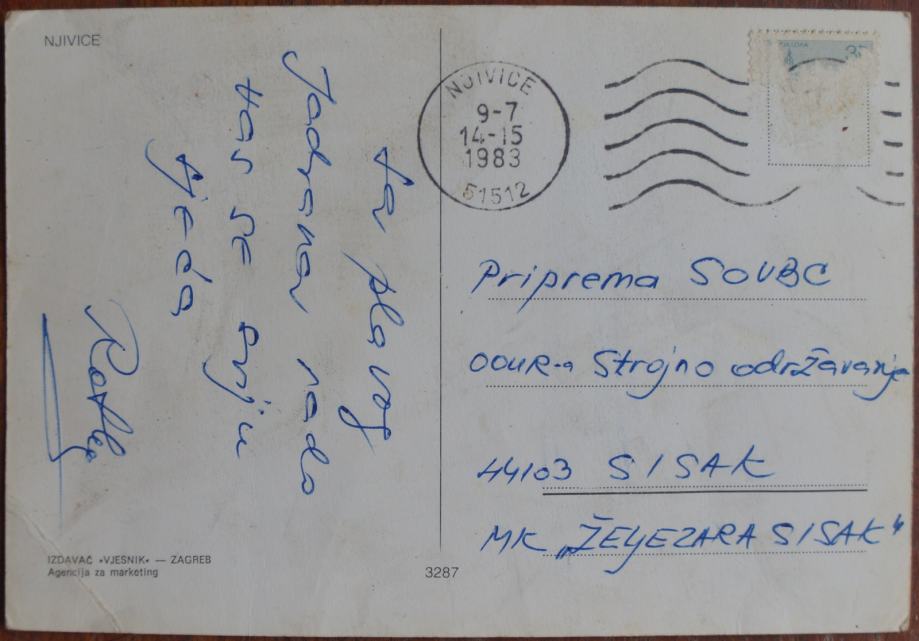 NJIVICE
sa plavog
Jadrana rado
Vas se svju
sjeća
NJIVICE
9-7
14-15
1983
51512
Priprema SOUBC
OOUR-a Strojno održavanje
44103 SISAK
MK „ŽELJEZARA SISAK"
IZDAVAČ «VJESNIK» — ZAGREB
Agencija za marketing
3287